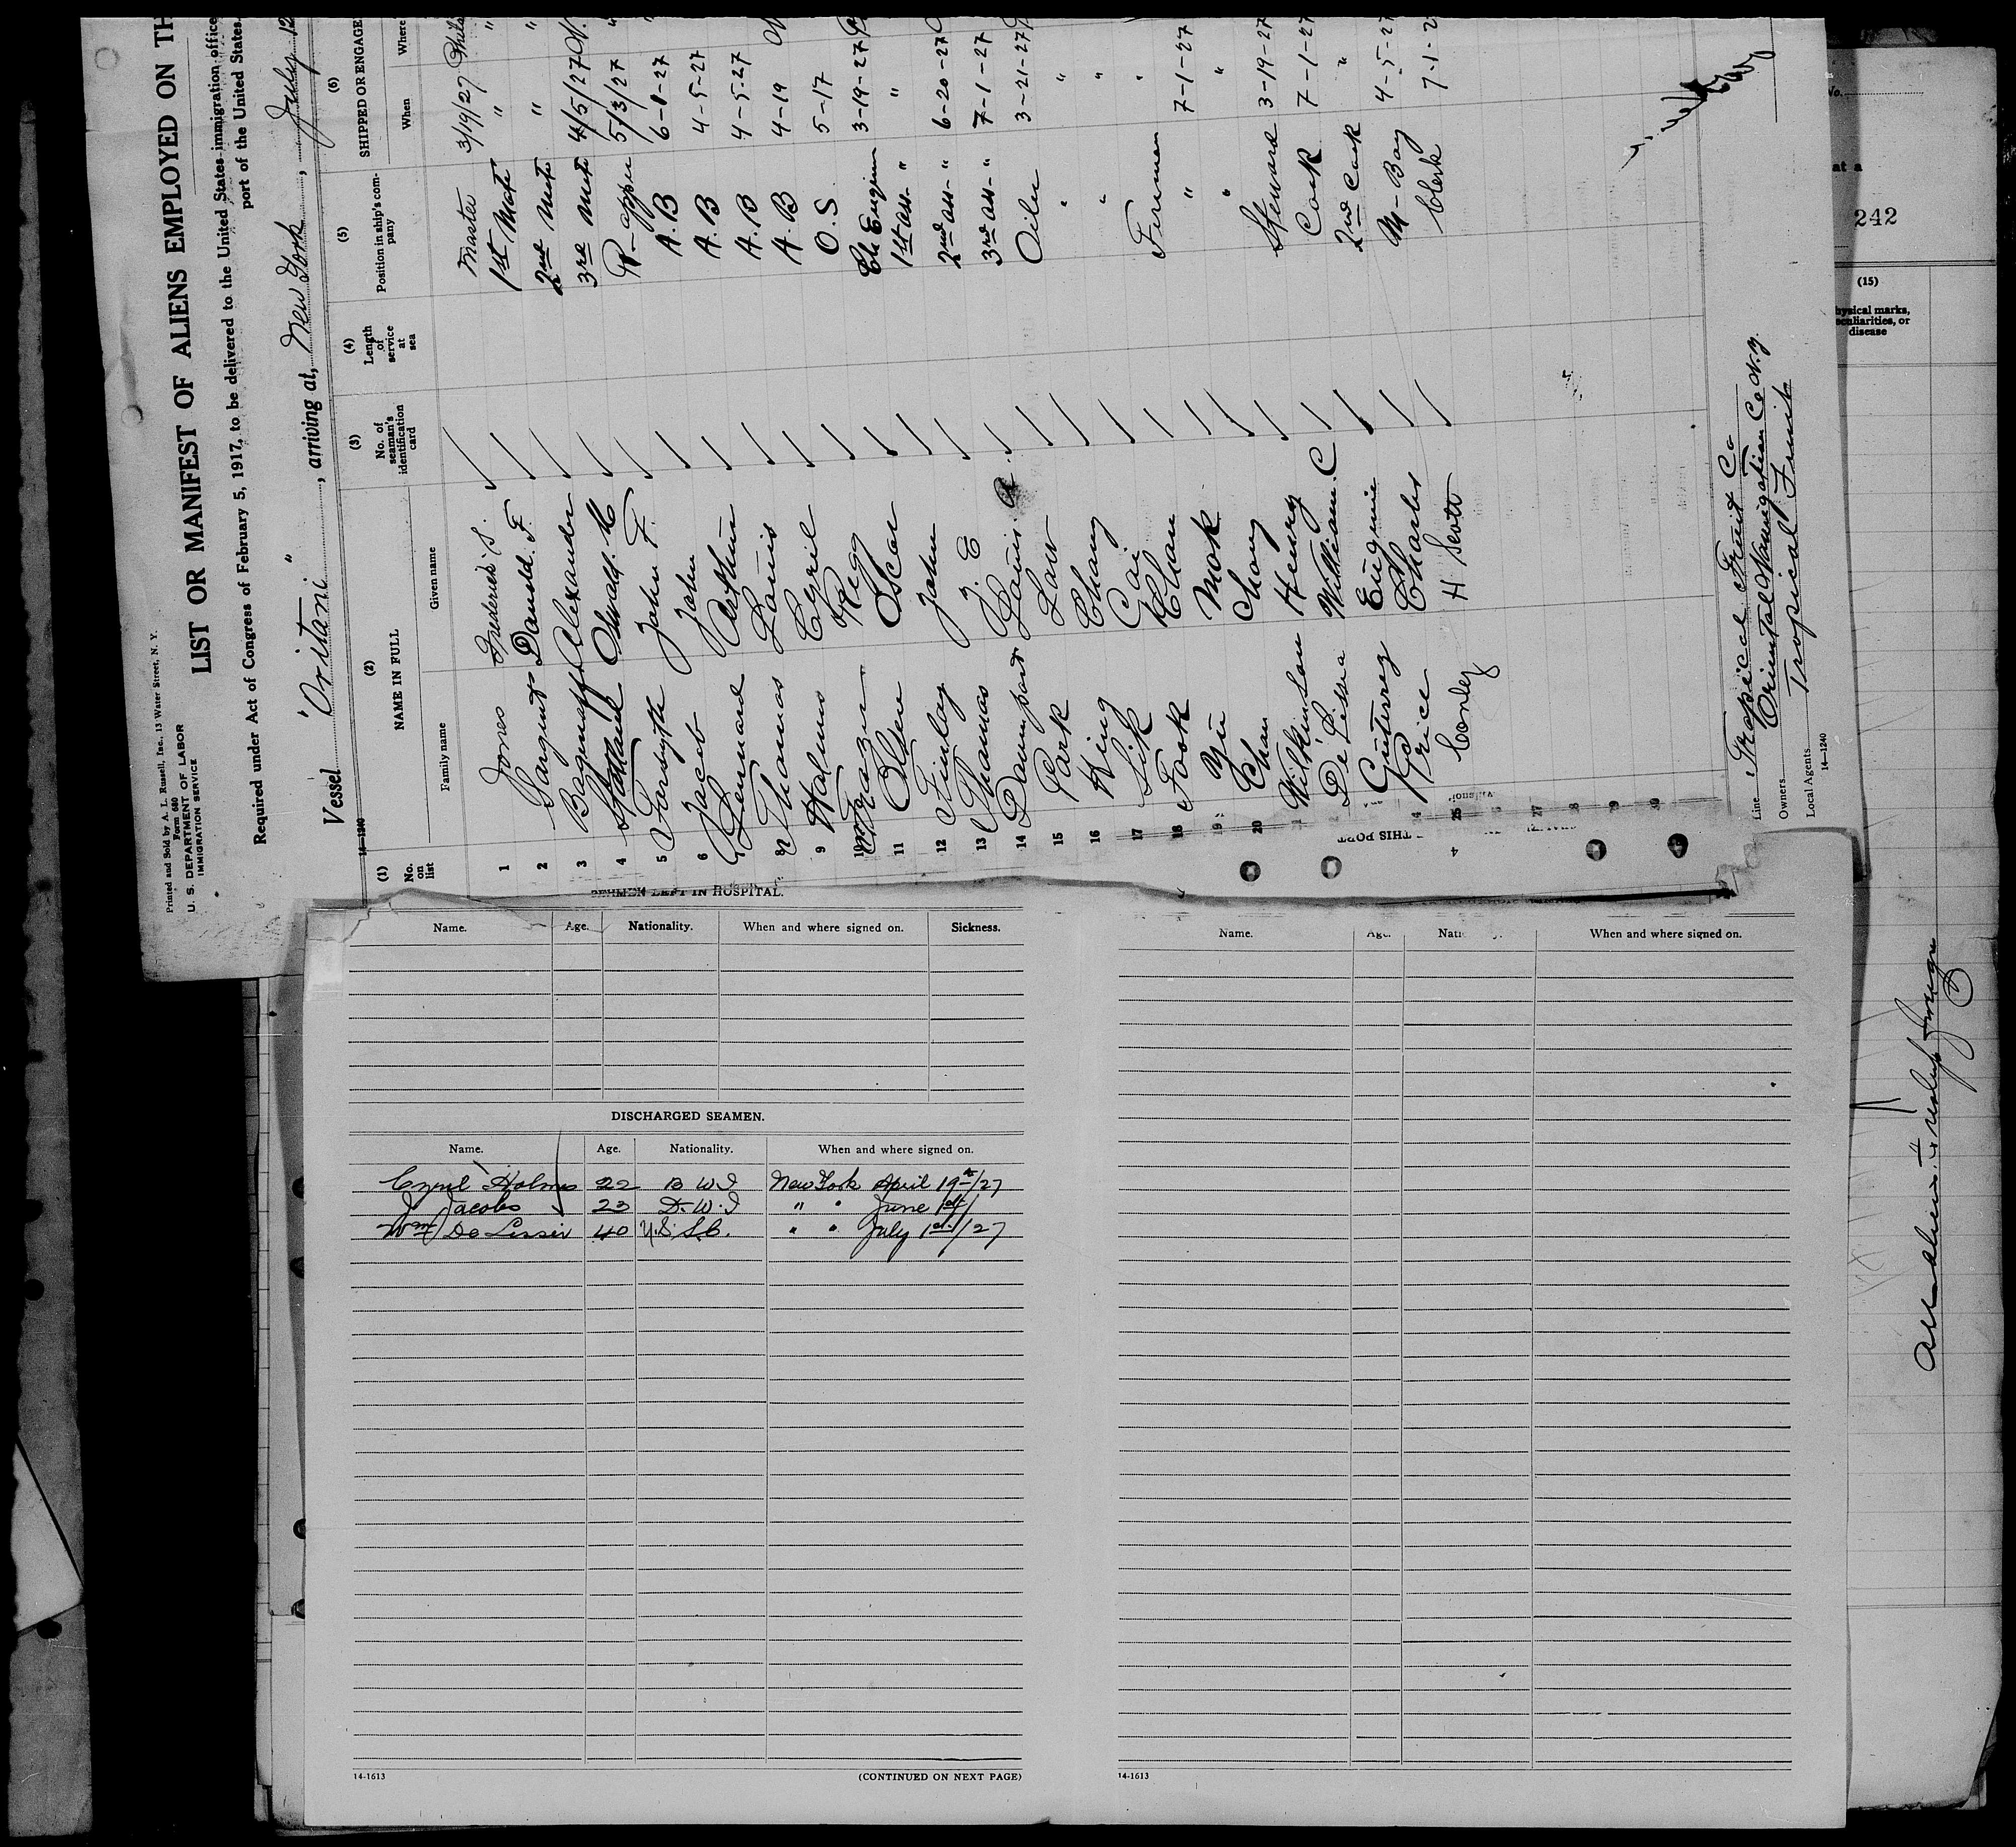 Printed and Sold by A. L. Russell, Inc., 13 Water Street, N. Y.
Form 680
U. S. DEPARTMENT OF LABOR
IMMIGRATION SERVICE
LIST OR MANIFEST OF ALIENS EMPLOYED ON TH
Required under Act of Congress of February 5, 1917, to be delivered to the United States immigration office
port of the United States.
Vessel "Oritani", arriving at, New York, July 12
14-1240
(1) (2) (3) (4) (5) (6)
No. on list NAME IN FULL No. of seaman's identification card Length of service at sea Position in ship's company SHIPPED OR ENGAGE
Family name Given name When Where
1 Jones Frederick S. Master 3/19/27 Phila
2 Sargent Donald. F 1st Mate " "
3 Alexander 2nd Mate " "
4 Oswald. M 3rd Mate 4/5/27 N.
5 Forsyth John F. 5/3/27 "
6 Jacob John A. B 6-1-27 "
Arthur A. B 4-5-27
8 Thomas Louis A. B 4-5-27
9 Holmes Cyril A. B 4-19 N
10 Frazer Reg O. S. 5-17
11 Olsen Oscar Ch Engineer 3-19-27
12 Finlay John 1st ass- " "
13 Thomas J. E 2nd ass- " 6-20-27
14 Davenport Louis. A. 3rd ass- " 7-1-27
15 Park Low Oiler 3-21-27
16 Hing Chong " "
17 Sik Coi " "
18 Fook Chan Firemen "
19 Yii Mok " 7-1-27
20 Chan Chong " "
1 Wilkinson Henry Steward 3-19-27
De Lissa William. C Cook 7-1-27
Gutierrez Eugenie 2nd Cook "
4 Price Charles M-Boy 4-5-27
25 Conley H Scott Clerk 7-1-2
27
28
29
THIS PORT
Line Tropical Fruit Co
Owners Oriental Navigation Co N.Y.
Local Agents Tropical Fruit
14-1240
No.
at a
242
(15)
hysical marks, peculiarities, or disease
SEAMEN LEFT IN HOSPITAL.
Name. Age. Nationality. When and where signed on. Sickness.
Name. Age. When and where signed on.
DISCHARGED SEAMEN.
Name. Age. Nationality. When and where signed on.
Cyril Holmes 22 B W I New York April 19th/27
J Jacobs 23 D. W. I " " June 1st/
Wm De Lisser 40 " " July 1st/27
14-1613
(CONTINUED ON NEXT PAGE)
14-1613